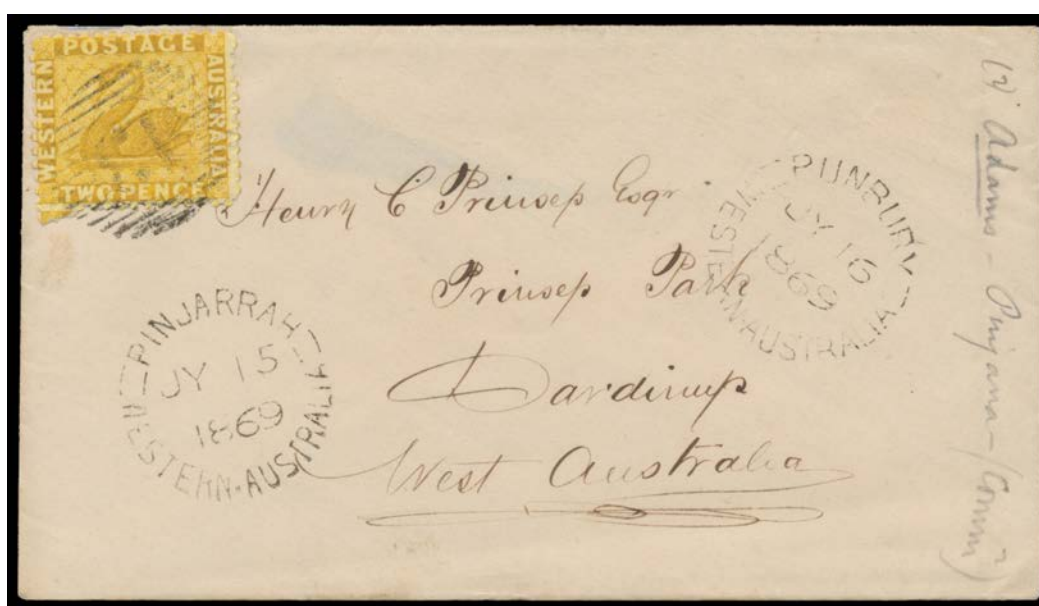 POSTAGE
WESTERN
AUSTRALIA
TWO PENCE
Henry C Prinsep Esqr
Prinsep Park
Dardinup
West Australia
PINJARRAH
JY 15
1869
WESTERN-AUSTRALIA
BUNBURY
JY 16
1869
WESTERN-AUSTRALIA
Adams -